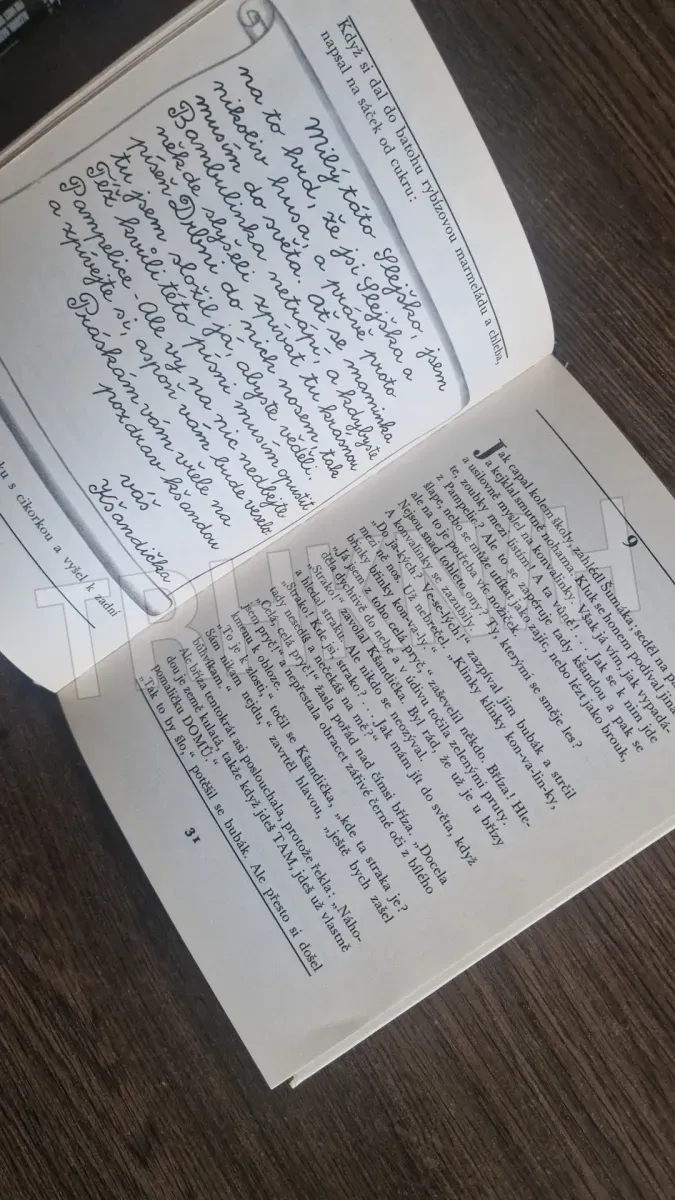 Když si dal do batohu rybízovou marmeládu a chleba,
napsal na sáček od cukru:
Milý táto Slejško, jsem
na to hrd, že jsi Slejška a
nikoliv husa, a právě proto
musím do světa. Ať se maminka
Bambulinka netrápí, a kdybyste
někde slyšeli zpívat tu krásnou
píseň Drbni do nich nosem, tak
tu jsem složil já, abyste věděli.
Též kvůli této písni musím opustit
Pampelice - Ale vy na nic nedbejte
a zpívejte si, aspoň vám bude veselo
Práskám vám vřele na
pozdrav kšandou
váš
Kšandička
ku s cikorkou a vyšel k zadní
9
Jak capal kolem školy, zahlédl Šumáka: seděl na
a kejklal smutně nohama. Kluk se honem podíval jina
a usilovně myslel na konvalinky. Však já vím, jak vypadá-
te, zoubky mezi listím! A ta vůně! . . . Jak se k nim jde
z Pampelic? Ale to se zapéruje tady kšandou a pak se
šlape, nebo se může utíkat jako zajíc, nebo lézt jako brouk,
ale na to je potřeba víc nožiček.
Nejsou snad tohleto ony? Ty, kterými se směje les?
A konvalinky se zazubily.
zazpíval jim bubák a strčil
mezi ně nos. Už nebrečel. „Klinky klinky kon-va-lin-ky,
blinky blinky kon-va-ly.“
„Já jsem z toho celá pryč,“ zaševelil někdo. Bříza! Hle-
děla dychtivě do nebe a v údivu točila zelenými pruty.
„Strako!“ zavolal Kšandička. Byl rád, že už je u břízy
a hledal straku. Ale nikdo se neozýval.
„Strako! Kde jsi, strako? . . . Jak mám jít do světa, když
tady nesedíš a nečekáš na mě?“
„Celá, celá pryč!“ žasla pořád nad čímsi bříza. „Docela
jsem pryč!“ a nepřestala obracet zářivé černé oči z bílého
kmenu k obloze.
„To je k zlosti,“ točil se Kšandička, „kde ta straka je?
Sám nikam nejdu,“ zavrtěl hlavou, „ještě bych zašel
Ale bříza tentokrát asi poslouchala, protože řekla: „Náho-
dou je země kulatá, takže když jdeš TAM, jdeš už vlastně
pomaličku DOMŮ.“
„Tak to by šlo,“ potěšil se bubák. Ale přesto si došel
31